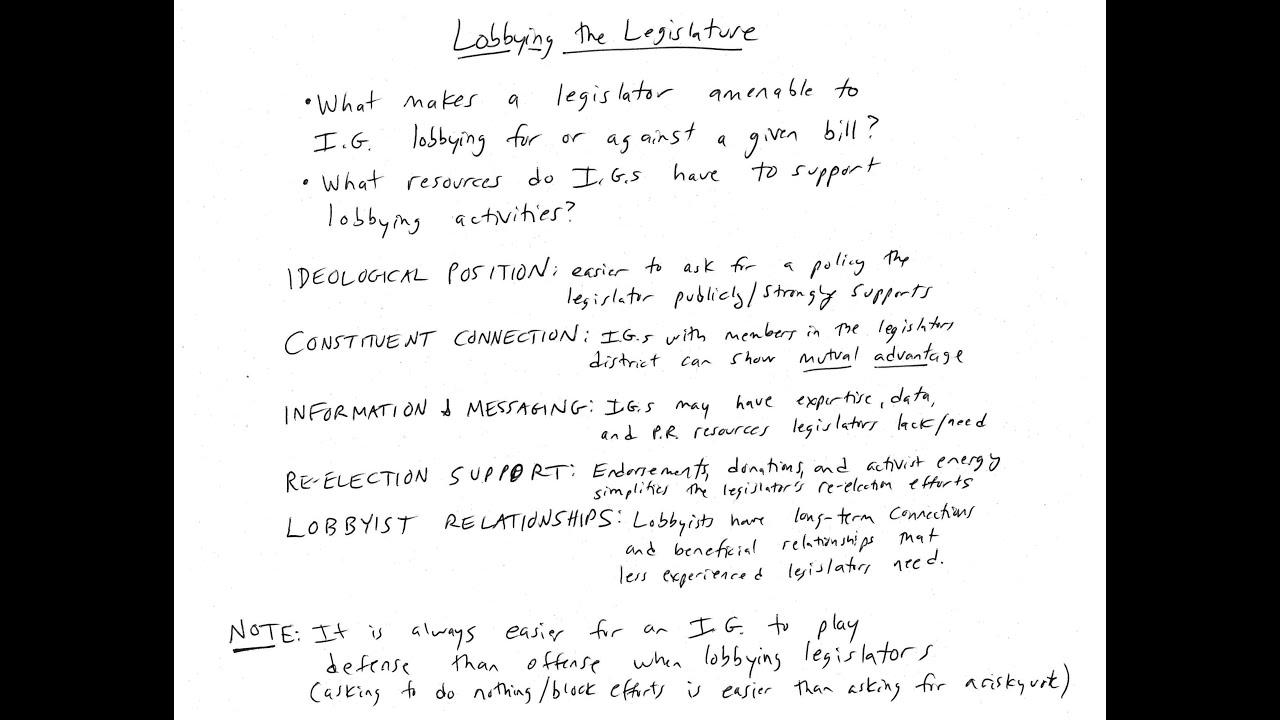 Lobbying the Legislature
• What makes a legislator amenable to
I.G. lobbying for or against a given bill?
• What resources do I.G.s have to support
lobbying activities?
IDEOLOGICAL POSITION: easier to ask for a policy the
legislator publicly/strongly supports
CONSTITUENT CONNECTION: I.G.s with members in the legislators
district can show mutual advantage
INFORMATION & MESSAGING: I.G.s may have expertise, data,
and P.R. resources legislators lack/need
RE-ELECTION SUPPORT: Endorsements, donations, and activist energy
simplifies the legislator's re-election efforts
LOBBYIST RELATIONSHIPS: Lobbyists have long-term connections
and beneficial relationships that
less experienced legislators need.
NOTE: It is always easier for an I.G. to play
defense than offense when lobbying legislators
(asking to do nothing/block efforts is easier than asking for a risky vote)